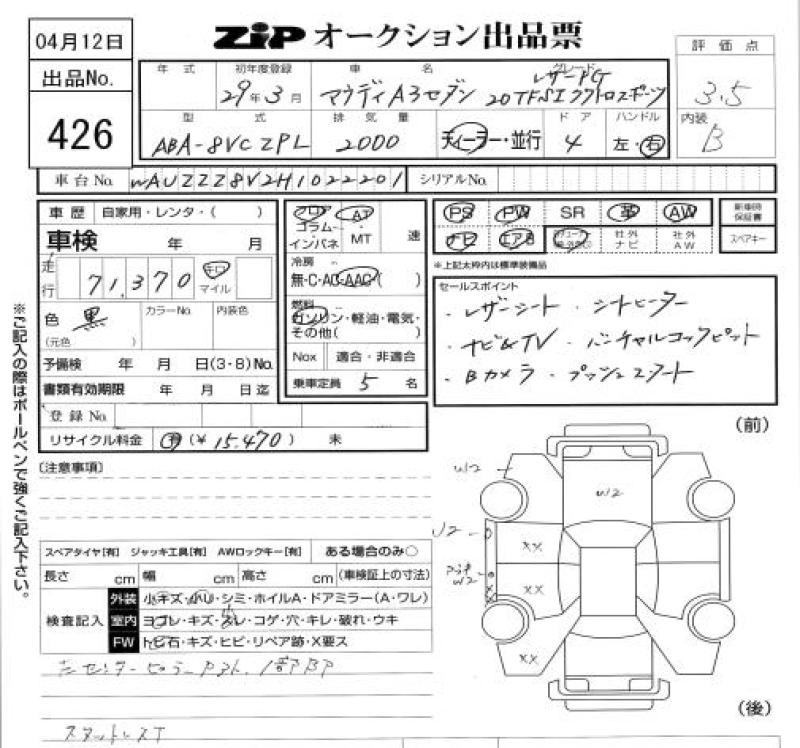 04月12日
ZIP オークション出品票
出品No.
426
年式 初年度登録 車名 グレード
29年3月 アウディA3セダン レザーPG
20TFSIクワトロスポーツ
型式 排気量 ドア ハンドル
ABA-8VCZPL 2000 ディーラー・並行 4 左・右
評価点
3.5
内装
B
車台No. WAUZZZ8V2H1022201 シリアルNo.
車歴 自家用・レンタ・( )
車検 年 月
走行 71,370 キロ マイル
色 黒 カラーNo. 内装色
(元色)
予備検 年 月 日(3・8)No.
書類有効期限 年 月 日迄
登録No.
リサイクル料金 有(¥15,470) 未
フロア AT
コラム
インパネ MT 速
冷房
無・C・AC・AAC( )
燃料
ガソリン・軽油・電気・
その他( )
Nox 適合・非適合
乗車定員 5 名
PS PW SR 革 AW 新車時保証書
ナビ エアB 社外ナビ 社外AW スペアキー
※上記太枠内は標準装備品
セールスポイント
・レザーシート ・シートヒーター
・ナビ&TV ・バーチャルコックピット
・Bカメラ ・プッシュスタート
※ご記入の際はボールペンで強くご記入下さい。
(注意事項)
スペアタイヤ[有] ジャッキ工具[有] AWロックキー[有] ある場合のみ○
長さ cm 幅 cm 高さ cm (車検証上の寸法)
検査記入
外装 小キズ・小U・シミ・ホイルA・ドアミラー(A・ワレ)
室内 ヨゴレ・キズ・スレ・コゲ・穴・キレ・破れ・ウキ
FW トビ石・キズ・ヒビ・リペア跡・X要ス
左センターピラー
1部BP
スタットレスT
(前)
W2
W2
W2
XX
W2
XX
XX
(後)